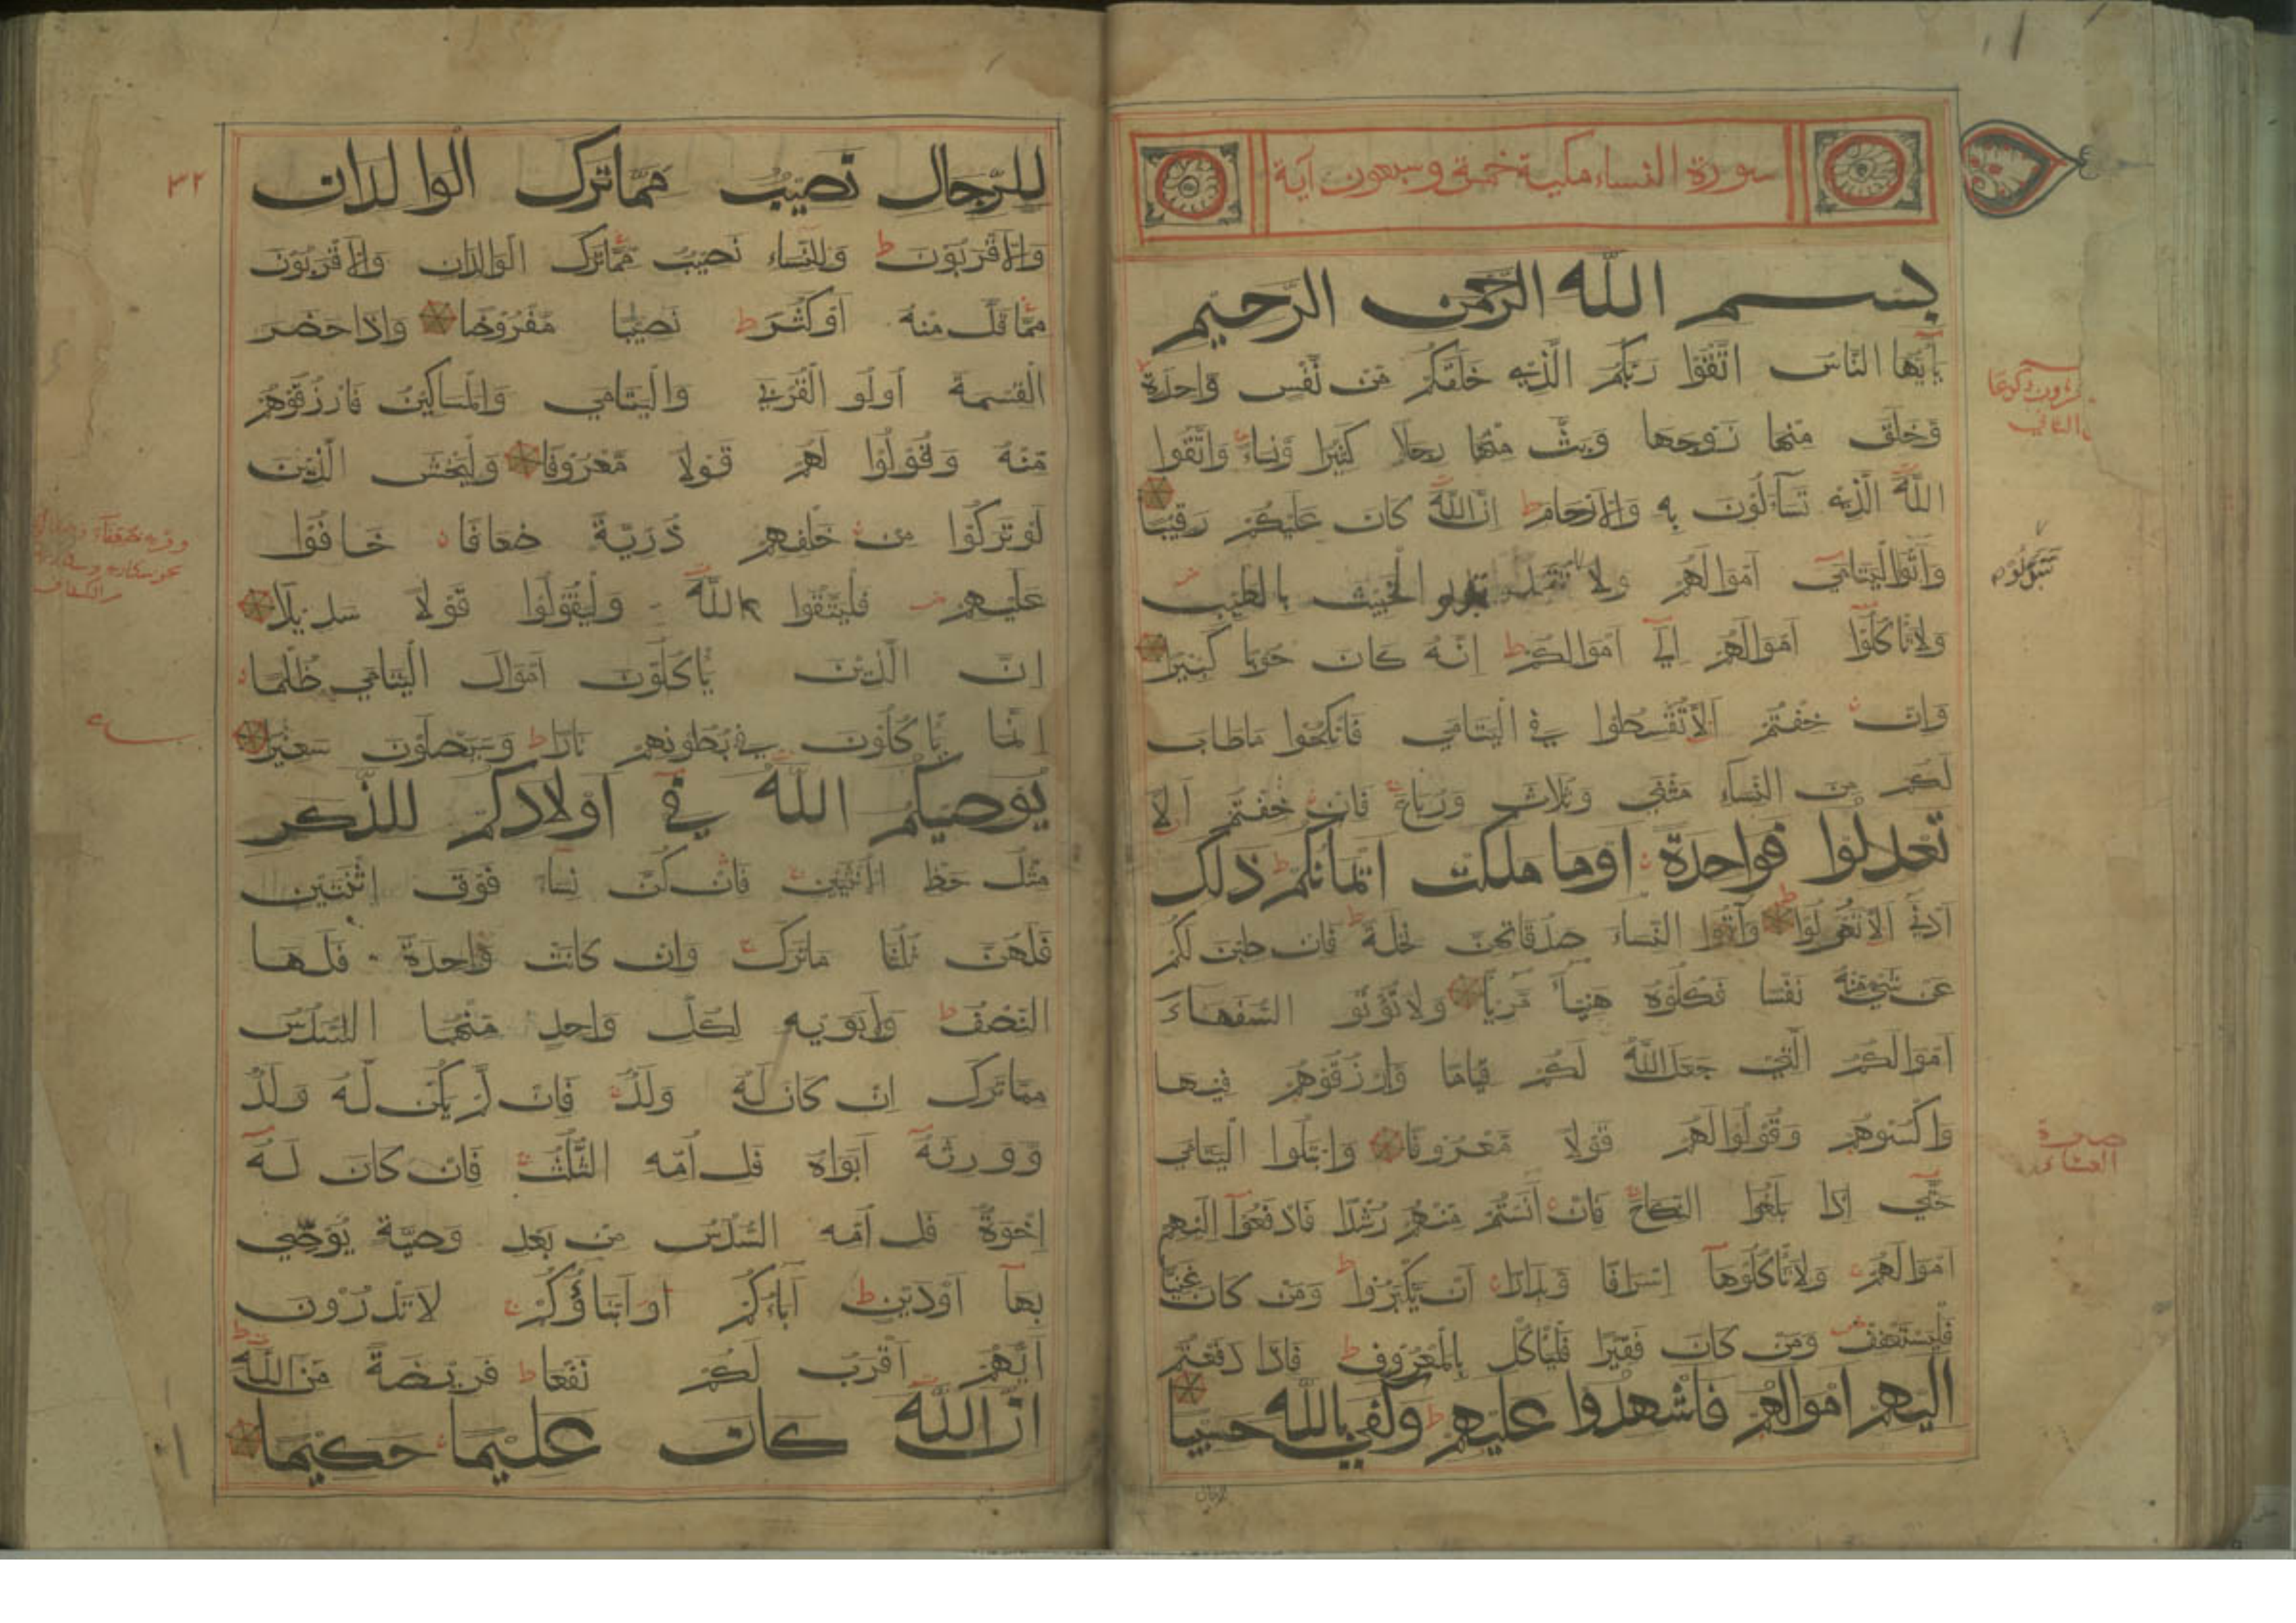 سورة النساء مكية خمسة وسبعون آية
بسم الله الرحمن الرحيم
يأيها الناس اتقوا ربكم الذي خلقكم من نفس واحدة
وخلق منها زوجها وبث منهما رجالا كثيرا ونساء واتقوا
الله الذي تساءلون به والارحام ط ان الله كان عليكم رقيبا
وآتوا اليتامى اموالهم ولا الخبيث بالطيب
ولا تاكلوا اموالهم الى اموالكم ط انه كان حوبا كبيرا
وان خفتم الا تقسطوا في اليتامى فانكحوا ماطاب
لكم من النساء مثنى وثلاث ورباع فان خفتم الا
تعدلوا فواحدة اوما ملكت ايمانكم ط ذلك
ادنى الا تعولوا ط وآتوا النساء صدقاتهن نحلة ط فان طبن لكم
عن شيء منه نفسا فكلوه هنيئا مريئا ولا تؤتو السفهاء
اموالكم التي جعل الله لكم قياما وارزقوهم فيها
واكسوهم وقولوا لهم قولا معروفا وابتلوا اليتامى
حتى اذا بلغوا النكاح فان آنستم منهم رشدا فادفعوا اليهم
اموالهم ولا تاكلوها اسرافا وبدارا ان يكبروا ط ومن كان غنيا
فليستعفف ومن كان فقيرا فلياكل بالمعروف ط فاذا دفعتم
اليهم اموالهم فاشهدوا عليهم ط وكفى بالله حسيبا
للرجال نصيب مما ترك الوالدان
والاقربون ط وللنساء نصيب مما ترك الوالدان والاقربون
مما قل منه اوكثر ط نصيبا مفروضا واذا حضر
القسمة اولو القربى واليتامى والمساكين فارزقوهم
منه وقولوا لهم قولا معروفا وليخش الذين
لو تركوا من خلفهم ذرية ضعافا خافوا
عليهم فليتقوا الله وليقولوا قولا سديدا
ان الذين ياكلون اموال اليتامى ظلما
انما ياكلون في بطونهم نارا ط وسيصلون سعيرا
يوصيكم الله في اولادكم للذكر
مثل حظ الانثيين فان كن نساء فوق اثنتين
فلهن ثلثا ماترك وان كانت واحدة فلها
النصف ط ولابويه لكل واحد منهما السدس
مما ترك ان كان له ولد فان لم يكن له ولد
وورثه ابواه فلامه الثلث فان كان له
اخوة فلامه السدس من بعد وصية يوصي
بها اودين ط آباؤكم اوابناؤكم لا تدرون
ايهم اقرب لكم نفعا ط فريضة من الله ط
ان الله كان عليما حكيما
٣٢